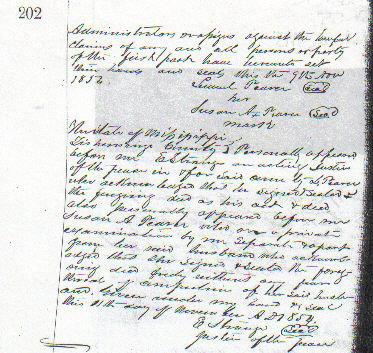 202
Administrators or assigns against the lawful
claims of any and all persons or party
of the first part have hereunto set
their hands and seals this the 9th Nov
1852
Samuel Pearer Seal
her
Susan A x Pearer Seal
mark
The State of Mississippi
Tishomingo County Personally appeared
before me E Strange an acting Justice
of the peace in & for said county Pearer
who acknowledged that he signed & sealed
the foregoing deed as his act & deed
also personally appeared before me
Susan A Pearer who on a private
examination by me separate & apart
from her said husband who acknowl
edged that she signed & sealed the fore
going deed freely without any fear
threat or compulsion of her said husband
and given under my hand & seal
this 9th day of November A D 1852
E Strange Seal
Justice of the peace